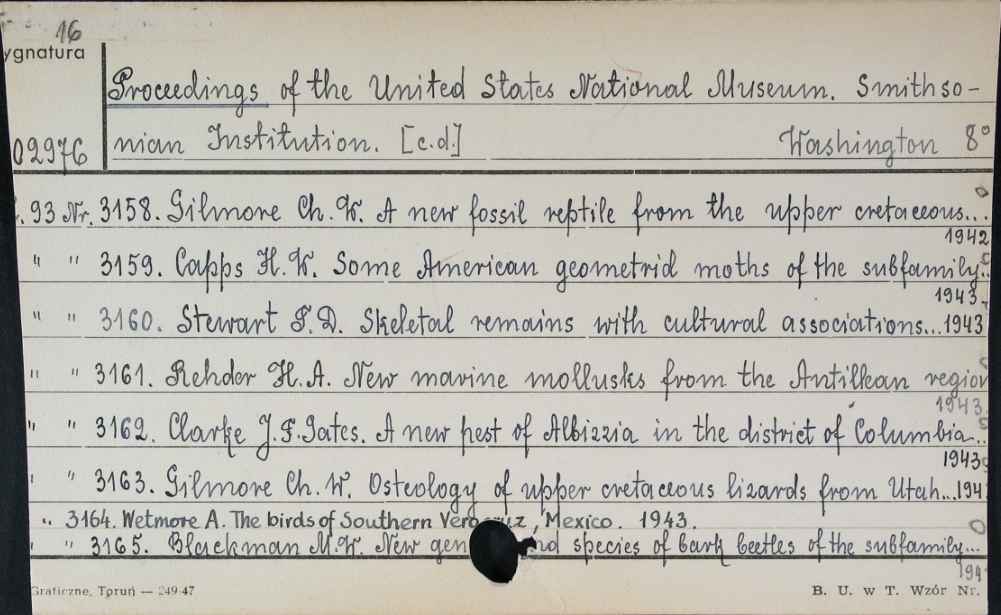 16
ygnatura
Proceedings of the United States National Museum. Smithso-
02976 nian Institution. [c.d.] Washington 8°
. 93 Nr. 3158. Gilmore Ch. W. A new fossil reptile from the upper cretaceous...
1942
" " 3159. Capps H. W. Some American geometrid moths of the subfamily..
1943.
" " 3160. Stewart T. D. Skeletal remains with cultural associations...1943
" " 3161. Rehder H. A. New marine mollusks from the Antillean region
1943.
" " 3162. Clarke J. F. Gates. A new pest of Albizzia in the district of Columbia..
1943
" " 3163. Gilmore Ch. W. Osteology of upper cretaceous lizards from Utah...194
" 3164. Wetmore A. The birds of Southern Veracruz, Mexico. 1943.
" " 3165. Blackman M. W. New gen nd species of bark beetles of the subfamily...
194
Graficzne, Toruń — 249-47 B. U. w T. Wzór Nr.